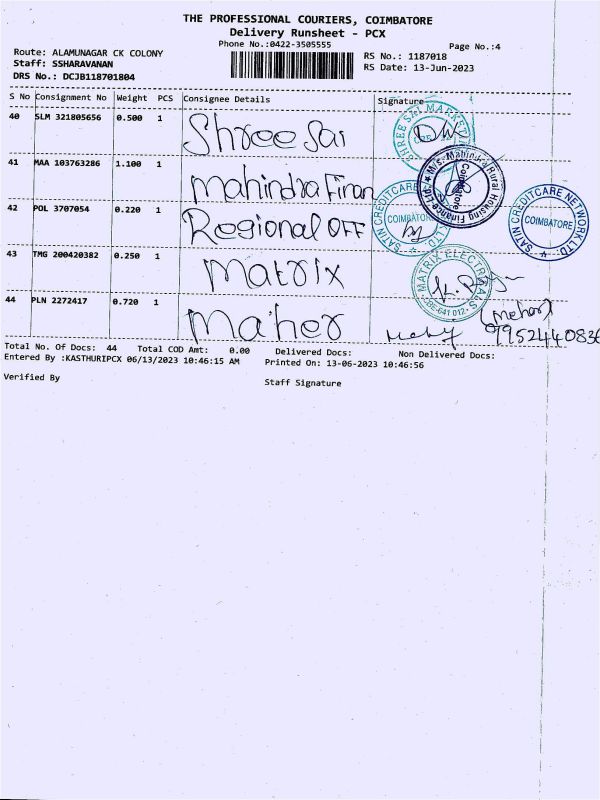 THE PROFESSIONAL COURIERS, COIMBATORE
Delivery Runsheet - PCX
Phone No.:0422-3505555
Page No.:4
Route: ALAMUNAGAR CK COLONY
Staff: SSHARAVANAN
DRS No.: DCJB118701804
RS No.: 1187018
RS Date: 13-Jun-2023
S No Consignment No Weight PCS Consignee Details Signature
40 SLM 321805656 0.500 1 Shree Sai
SHREE SAI MARKET
41 MAA 103763286 1.100 1 Mahindra Finan
M/s. Mahindra Rural Housing Finance Ltd. ★
Coimbatore
42 POL 3707054 0.220 1 Regional OFF
SATIN CREDITCARE LTD
COIMBATORE
SATIN CREDITCARE NETWORK LTD
COIMBATORE
43 TMG 200420382 0.250 1 Matrix
MATRIX ELECTRICALS
CBE-641 012
44 PLN 2272417 0.720 1 Maher
(Meher)
9952440836
Total No. Of Docs: 44 Total COD Amt: 0.00 Delivered Docs: Non Delivered Docs:
Entered By :KASTHURIPCX 06/13/2023 10:46:15 AM Printed On: 13-06-2023 10:46:56
Verified By
Staff Signature